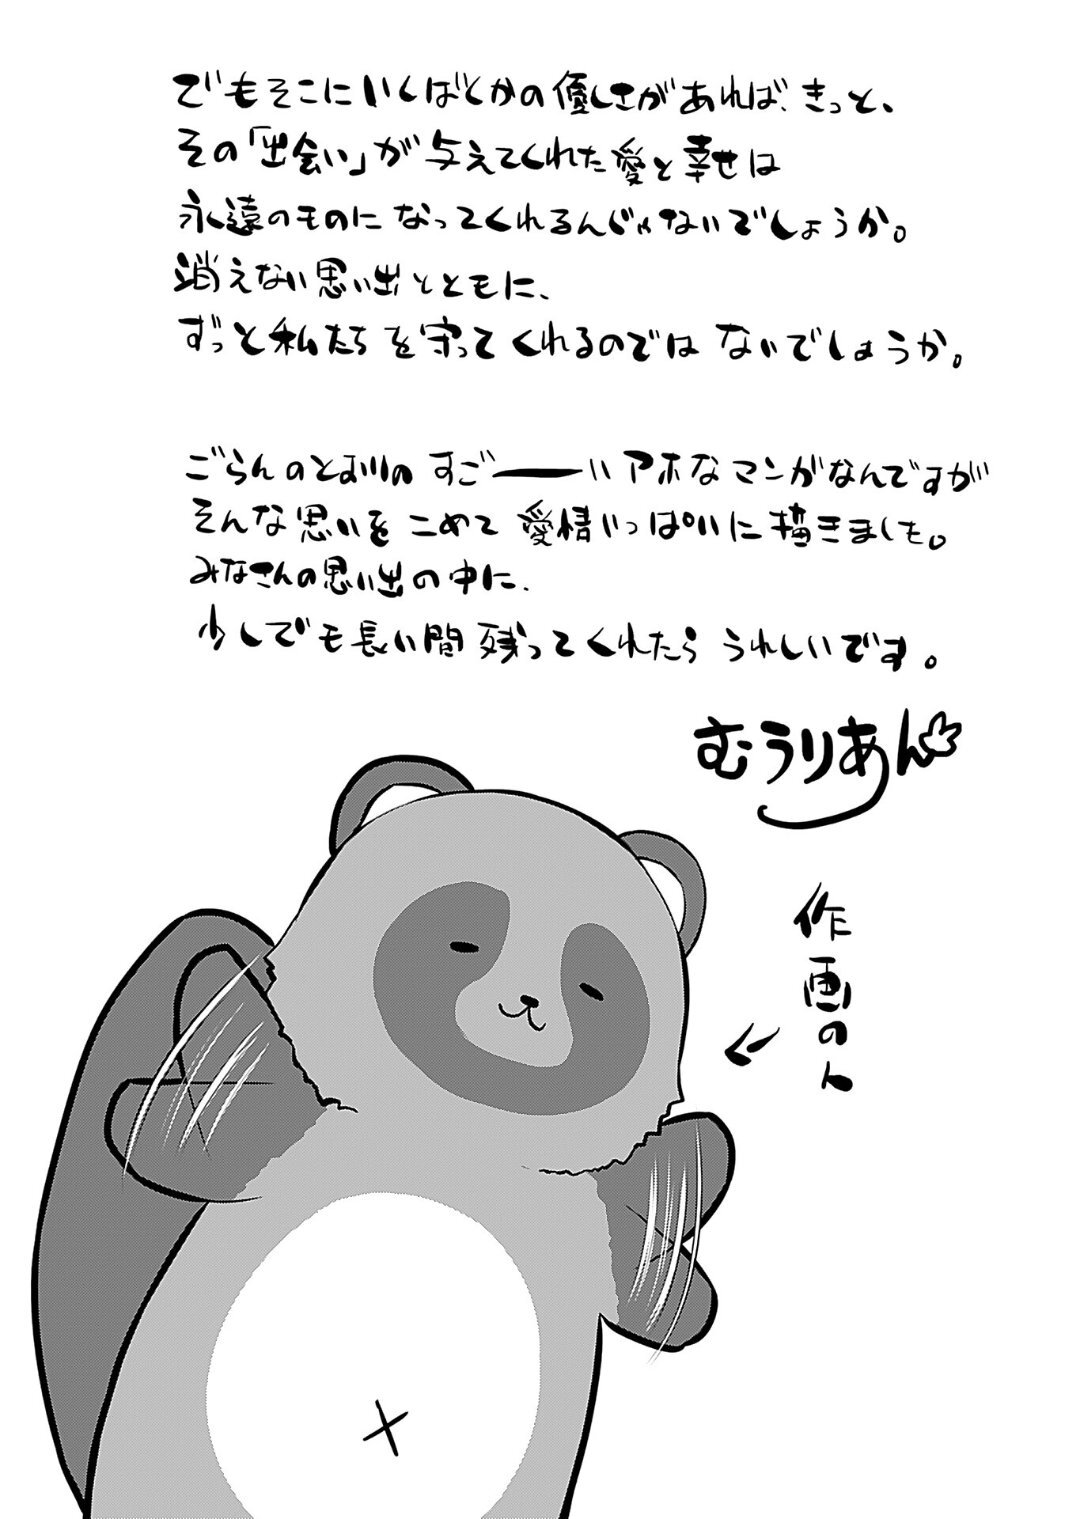 でもそこにいくばくかの優しさがあれば、きっと、
その「出会い」が与えてくれた愛と幸せは
永遠のものになってくれるんじゃないでしょうか。
消えない思い出とともに、
ずっと私たちを守ってくれるのではないでしょうか。
ごらんのとおりのすご――いアホなマンガなんですが
そんな思いをこめて愛情いっぱいに描きました。
みなさんの思い出の中に、
少しでも長い間残ってくれたらうれしいです。
むうりあん
作画のん